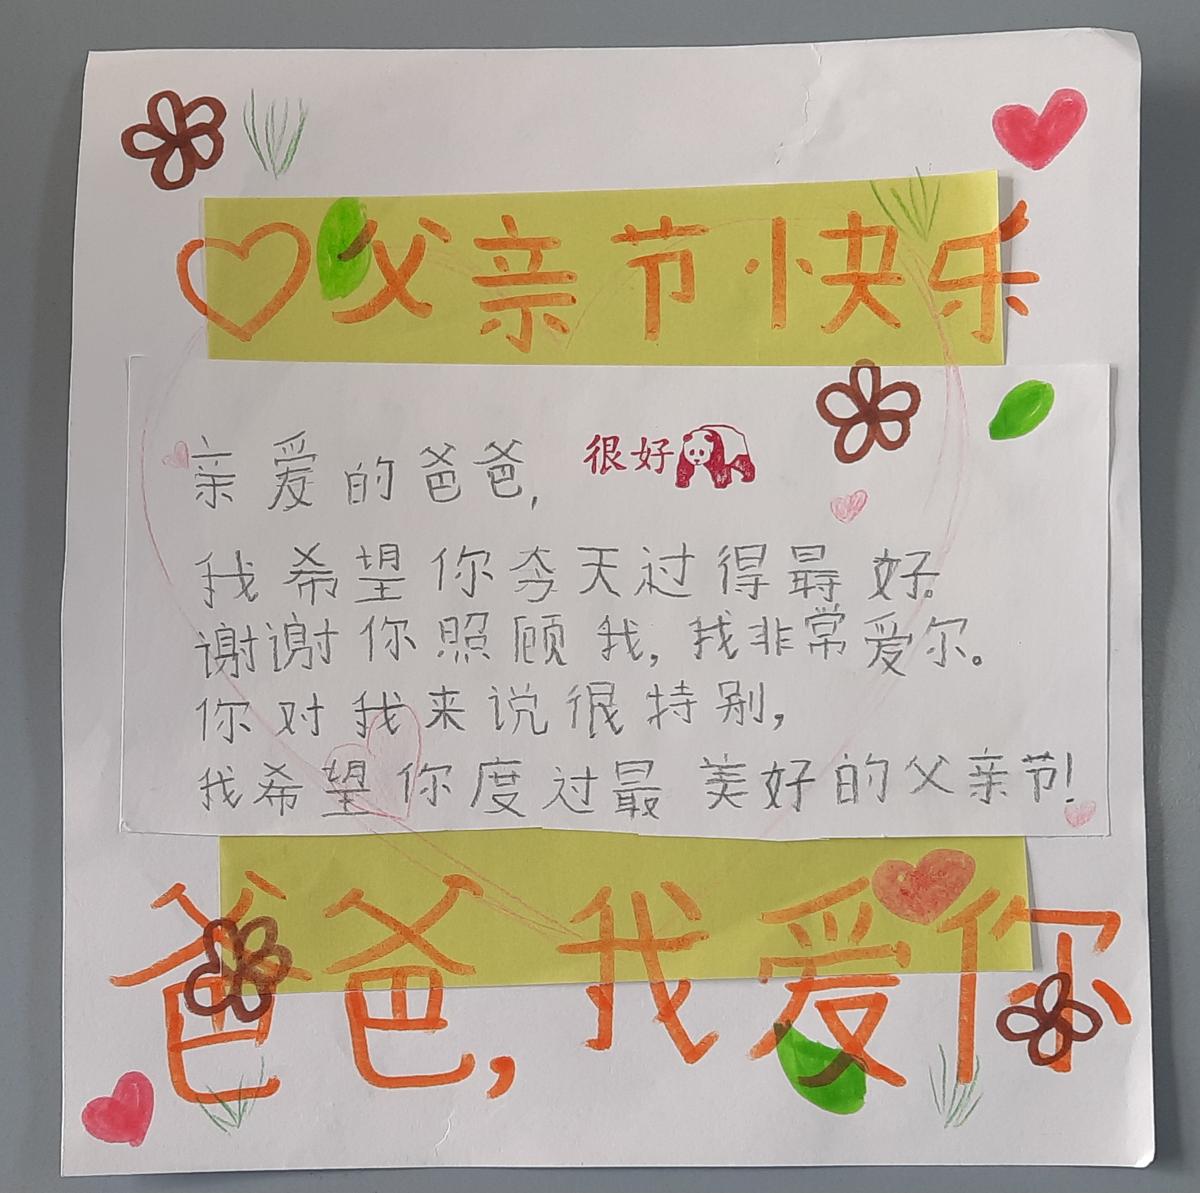 父亲节快乐
亲爱的爸爸,
很好
我希望你今天过得最好。
谢谢你照顾我,我非常爱尔。
你对我来说很特别,
我希望你度过最美好的父亲节!
爸爸,我爱你